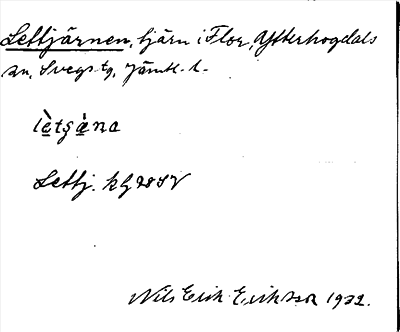 Lettjärnen, tjärn i Flor, Ytterhogdals
sn, Svegs tg, Jämtl. l.
lètsæ̀na
Lettj. kg 28 SV
Nils Erik Eriksson 1932.